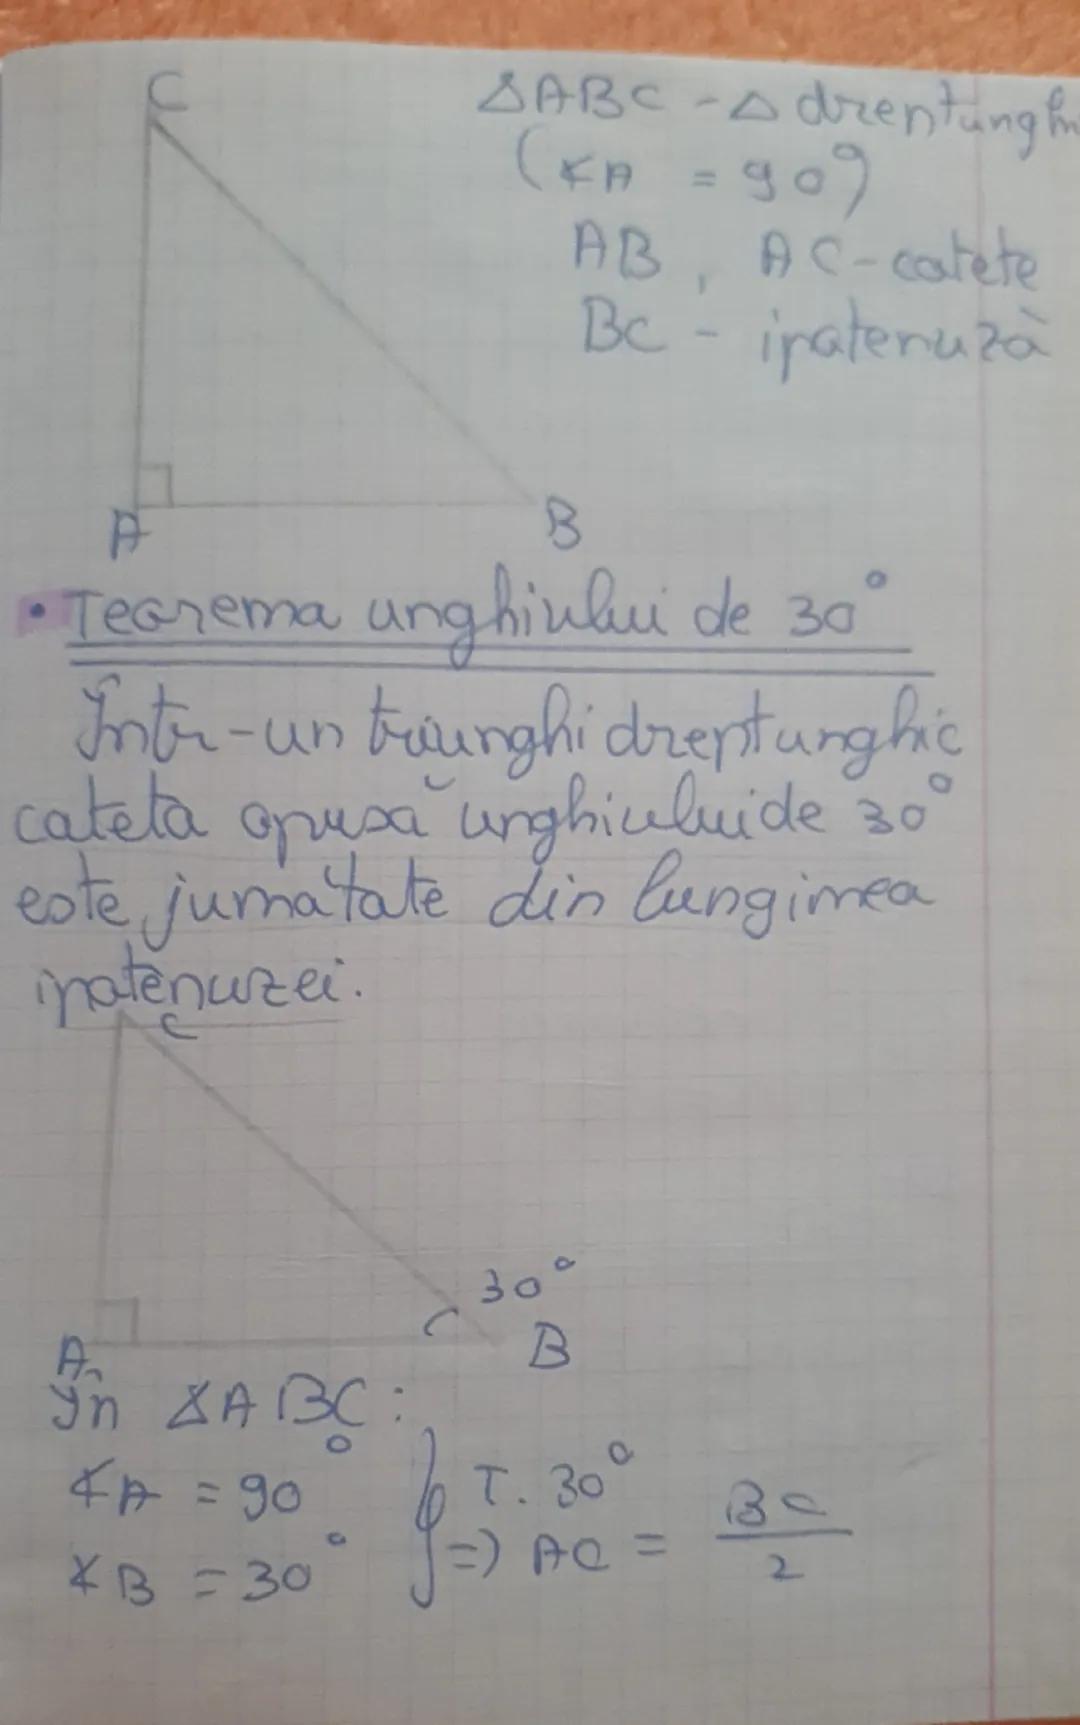 C
ΔABC - Δ dreptunghi
(∢A = 90°)
AB, AC - catete
BC - ipotenuză
A
B
• Teorema unghiului de 30°
Într-un triunghi dreptunghic
cateta opusă unghiului de 30°
este jumătate din lungimea
ipotenuzei.
C
30°
A
B
În ΔABC:
∢A = 90° } T. 30°
∢B = 30° => AC = BC/2